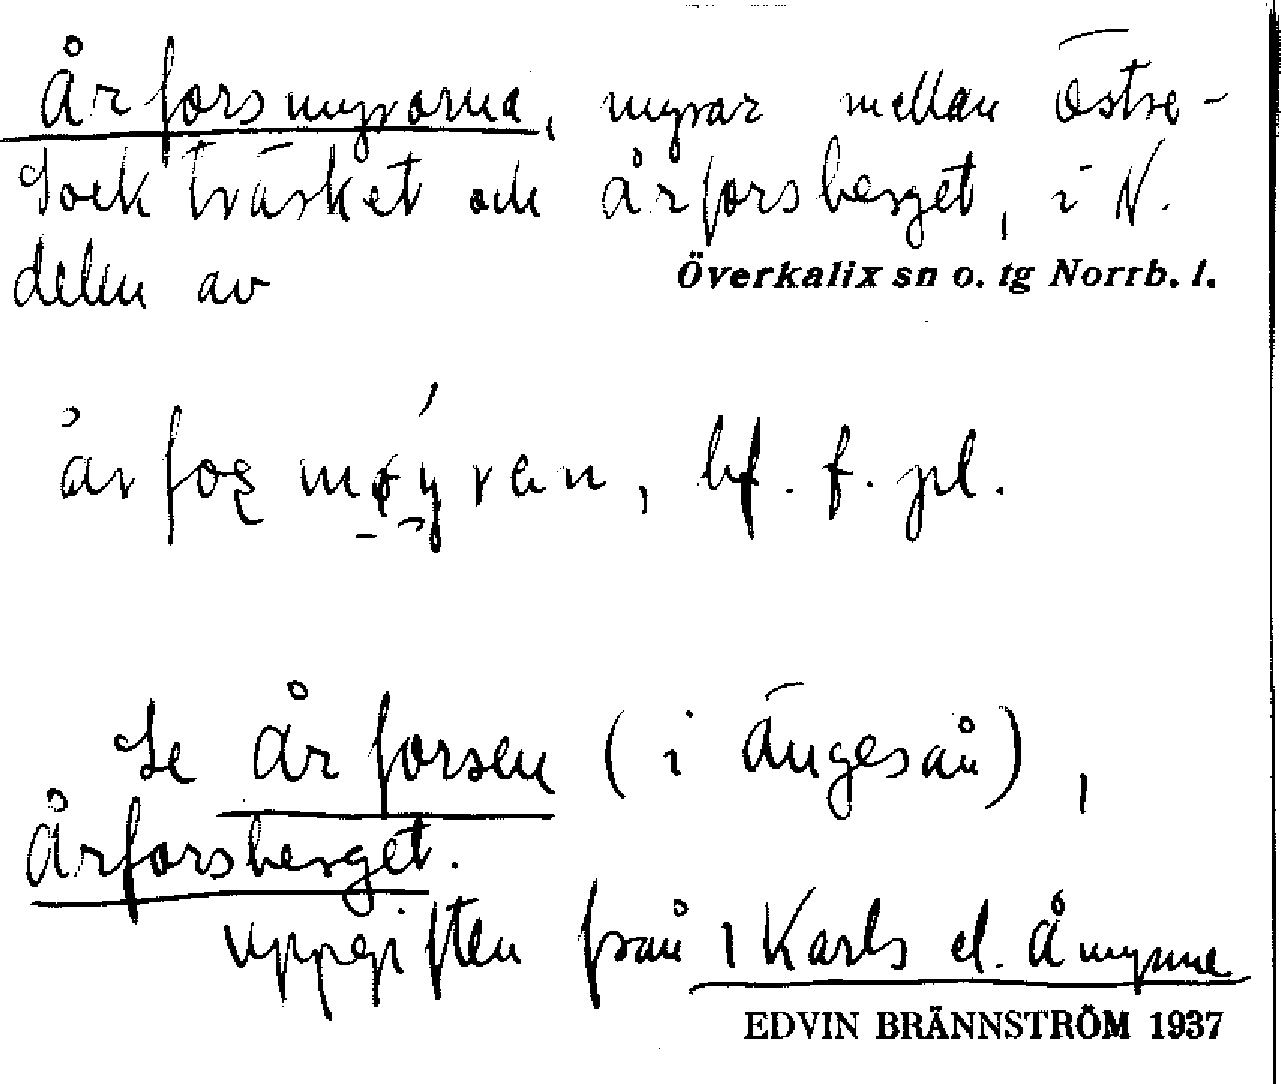 Årforsmyrorna, myrar mellan Östre-
Sockträsket och Årforsberget, i N.
delen av Överkalix sn o. tg Norrb. l.
bf. f. pl.
Se Årforsen (i Ängesån),
Årforsberget.
Uppgiften från 1 Karls el. Åmynne
EDVIN BRÄNNSTRÖM 1937